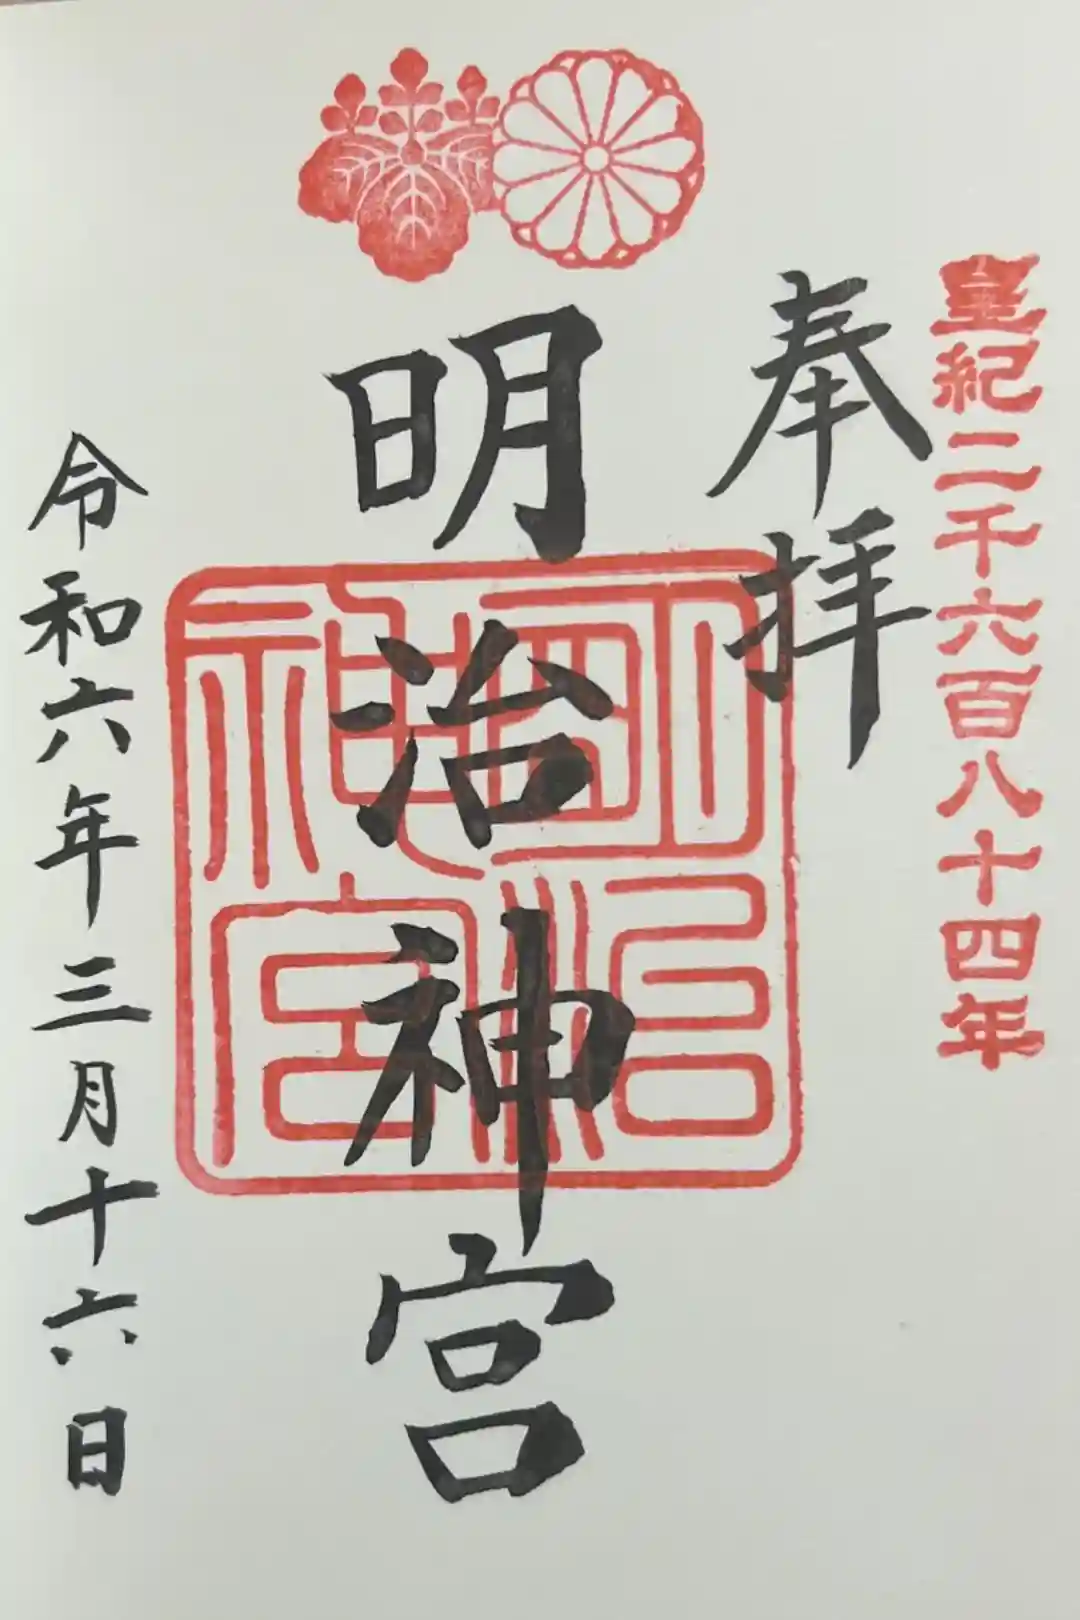 皇紀二千六百八十四年
奉拝
明治神宮
明治神宮
令和六年三月十六日